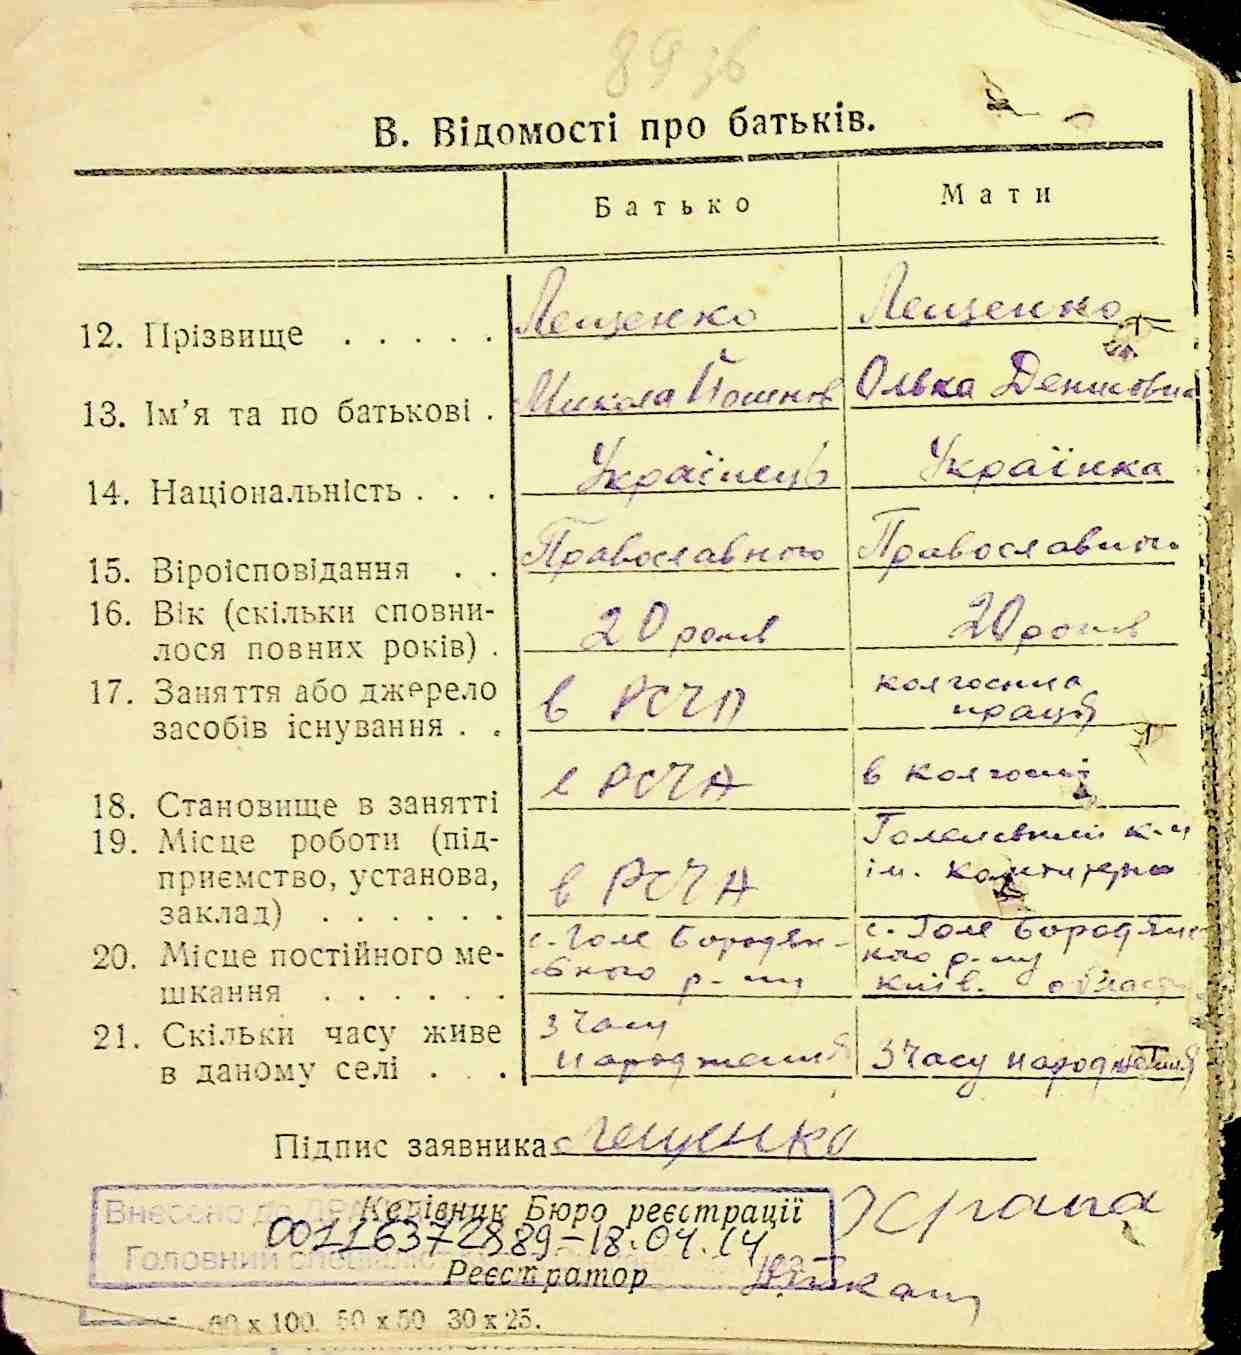 89 зв
В. Відомості про батьків.
Батько Мати
12. Прізвище . . . . . Лещенко Лещенко
13. Ім’я та по батькові . Микола Олька Денисовна
14. Національність . . . Українець Українка
15. Віроісповідання . . Православного Православного
16. Вік (скільки сповни-
лося повних років) . 20 років 20 років
17. Заняття або джерело
засобів існування . . в РСЧА колгоспна праця
18. Становище в занятті в РСЧА в колгоспі
19. Місце роботи (під-
приємство, установа,
заклад) . . . . . . в РСЧА ім. Комінтерна
20. Місце постійного ме-
шкання . . . . . . с. Голе Бородян-
ського р-ну с. Голе Бородянс-
кого р-ну
Київ. області
21. Скільки часу живе
в даному селі . . . З часу
народження З часу народження
Підпис заявника Лещенко
Внесено до ДРА
Керівник Бюро реєстрації
00116372889-18.04.14
Головний спеціаліст
Реєстратор
60 х 100. 50 х 50 30 х 25.